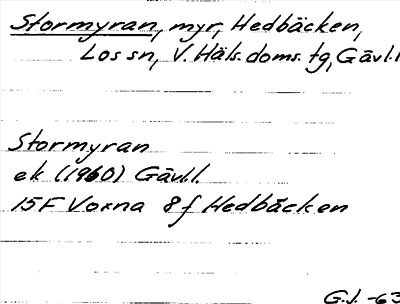 Stormyran, myr, Hedbäcken,
Los sn, V. Häls. doms. tg, Gävl. l
Stormyran
ek (1960) Gävl.l.
15F Voxna 8f Hedbäcken
G.J. -63